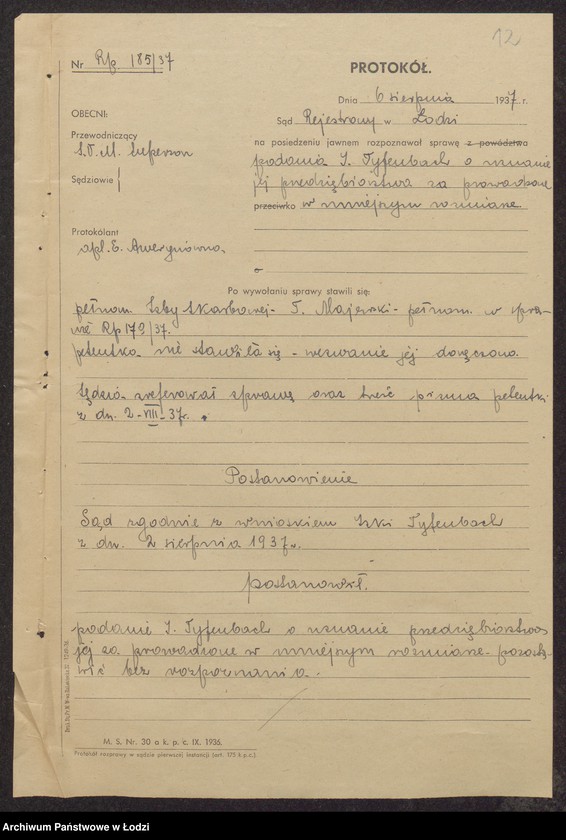 12
Nr Rp. 185/37
PROTOKÓŁ.
Dnia 6 sierpnia 1937 r.
OBECNI:
Sąd Rejestrowy w Łodzi
Przewodniczący
na posiedzeniu jawnem rozpoznawał sprawę z powództwa
S.O.M.
podania I. Tyfenbach o uznanie
Sędziowie
jej przedsiębiorstwa za prowadzone
przeciwko w mniejszym rozmiarze.
Protokólant
apl. E. Awerynówna
Po wywołaniu sprawy stawili się:
pełnom. Izby Skarbowej - T. Majewski - pełnom. w spra-
wie Rp 172/37.
petentka nie stawiła się - wezwanie jej doręczono.
Sędzia zreferował sprawę oraz treść pisma petentki
z dn. 2-VIII-37r.
Postanowienie
Sąd zgodnie z wnioskiem Tyfenbach
z dn. 2 sierpnia 1937r.
postanowił.
podanie I. Tyfenbach o uznanie przedsiębiorstwa
jej za prowadzone w mniejszym rozmiarze - pozosta-
wić bez rozpoznania.
M. S. Nr. 30 a k. p. c. IX. 1936.
Protokół rozprawy w sądzie pierwszej instancji (art. 175 k.p.c.)
Archiwum Państwowe w Łodzi